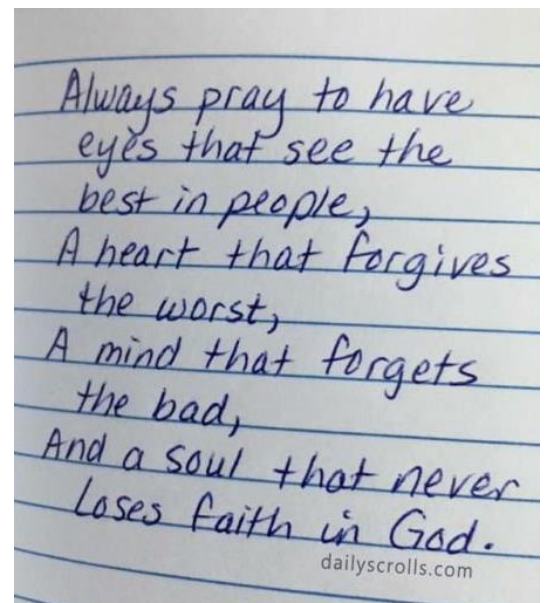 Always pray to have
eyes that see the
best in people,
A heart that forgives
the worst,
A mind that forgets
the bad,
And a soul that never
loses faith in God.
dailyscrolls.com